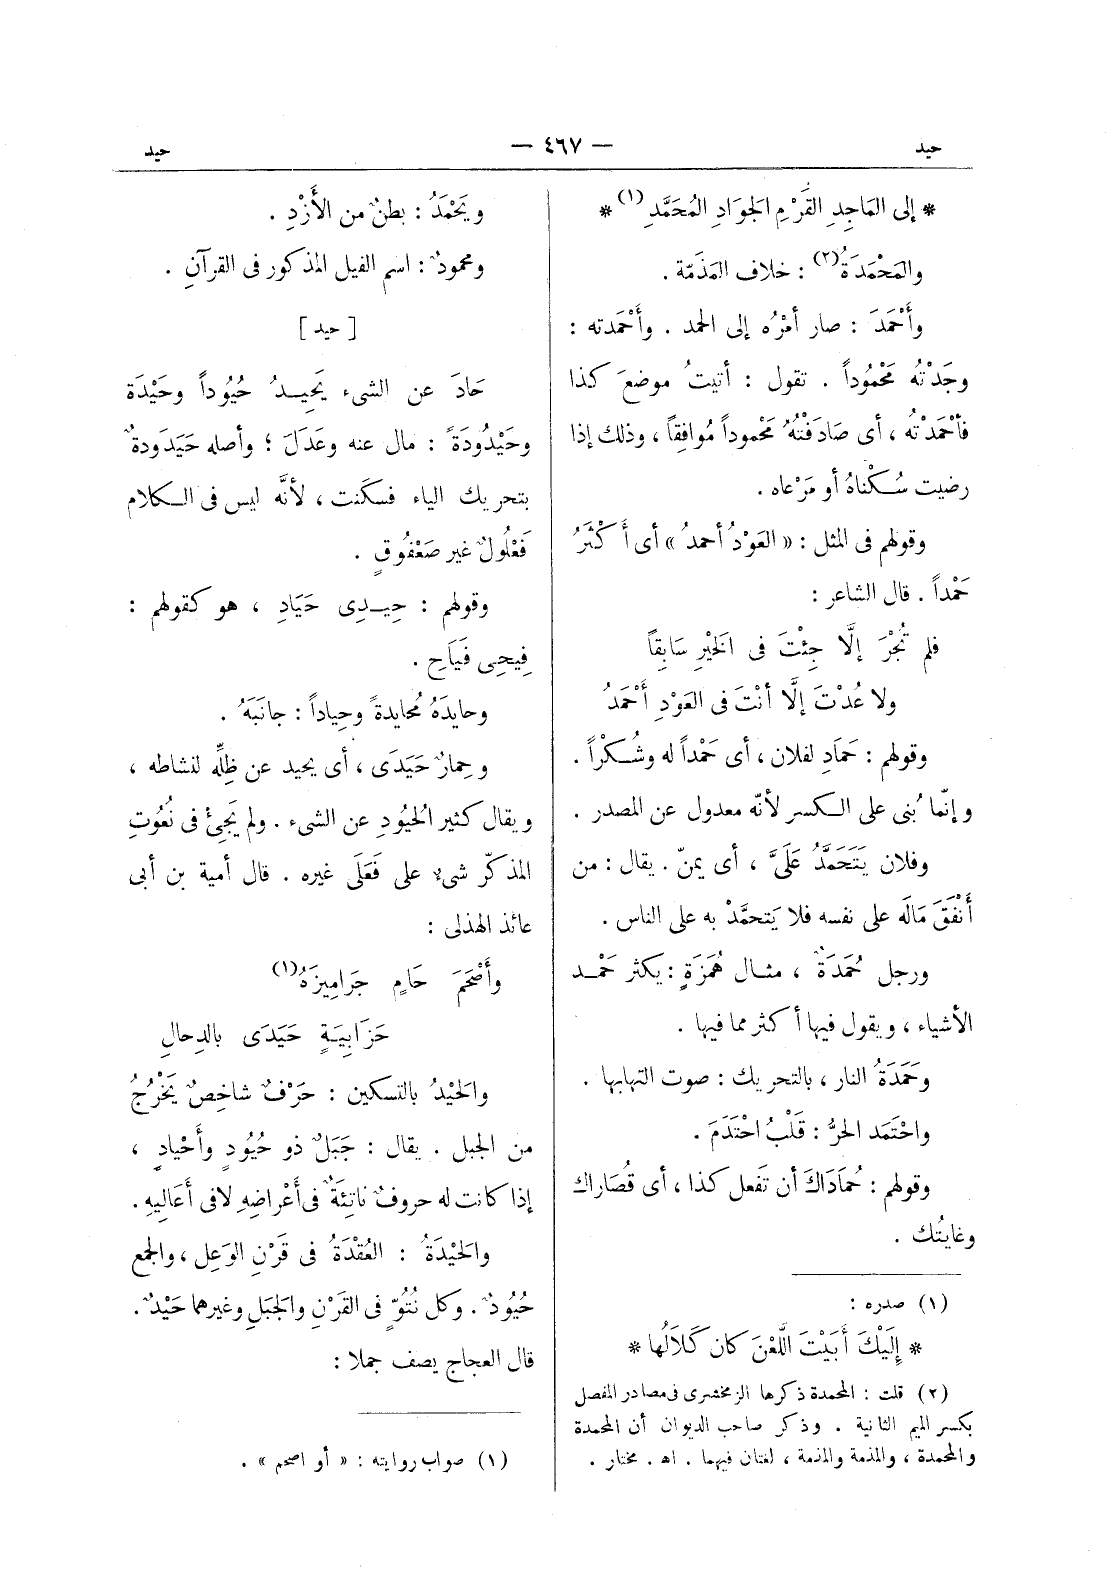 حيد
— ٤٦٧ —
حيد
* إلى المَاجِدِ القَرْمِ الجَوَادِ المُحَمَّدِ (١) *
والمَحْمَدَةُ (٢) : خلاف المَذَمّة .
وأَحْمَدَ : صار أمْرُه إلى الحمد . وأَحْمَدته :
وجَدْتُه مَحْمُوداً . تقول : أتيتُ موضعَ كذا
فأحْمَدْتُه ، أى صَادَفْتُهُ مَحْموداً مُوافِقاً ، وذلك إذا
رضيت سُكْناهُ أو مَرْعاه .
وقولهم فى المثل : « العَوْدُ أحمدُ » أى أَكْثَرُ
حَمْداً . قال الشاعر :
فلم تُجْرِ إلَّا جِئْتَ فى الخَيْرِ سَابِقاً
ولا عُدْتَ إلَّا أنْتَ فى العَوْدِ أَحْمَدُ
وقولهم : حَمَادِ لفلان ، أى حَمْداً له وشُكْراً .
وإنّما بُنى على الكسر لأنّه معدول عن المصدر .
وفلان يَتَحَمَّدُ عَلَىَّ ، أى يمنّ . يقال : من
أَنْفَقَ مَالَه على نفسه فلا يَتحمَّدْ به على الناس .
ورجل حُمَدَةٌ ، مثال هُمَزَةٍ : يكثر حَمْد
الأشياء ، ويقول فيها أكثر مما فيها .
وحَمَدَةُ النار ، بالتحريك : صوت التهابها .
واحْتَمَد الحرُّ : قَلْبُ احْتَدَمَ .
وقولهم : حُمَادَاكَ أن تَفعل كذا ، أى قُصَاراك
وغايتُك .
(١) صدره :
* إِلَيْكَ أَبَيْتَ اللَّعْنَ كان كَلَالُها *
(٢) قلت : المحمدة ذكرها الزمخشرى فى مصادر المفصل
بكسر الميم الثانية . وذكر صاحب الديوان أن المحمدة
والمحمدة ، والمذمة والمذمة ، لغتان فيهما . اهـ . مختار .
ويَحْمَدُ : بطنٌ من الأَزْدِ .
ومحمودٌ : اسم الفيل المذكور فى القرآنِ .
[ حيد ]
حَادَ عن الشىء يَحِيدُ حُيُوداً وحَيْدَة
وحَيْدُودَةً : مال عنه وعَدَلَ ؛ وأصله حَيَدَودةٌ
بتحريك الياء فسكنت ، لأنَّه ليس فى الكلام
فَعْلُولٌ غير صَعْفُوقٍ .
وقولهم : حِيدِى حَيَادِ ، هو كقولهم :
فِيحِى فَيَاحِ .
وحايدَهُ مُحايدةً وحِياداً : جانَبَهُ .
وحِمارٌ حَيَدَى ، أى يحيد عن ظِلِّه لنشاطه ،
ويقال كثير الحُيُودِ عن الشىء . ولم يَجِئْ فى نُعُوتِ
المذكّر شىء على فَعَلَى غيره . قال أمية بن أبى
عائذ الهذلى :
وأَصْحَمَ حَامٍ جَرامِيزَهُ (١)
حَزَابِيَةٍ حَيَدَى بالدِحالِ
والحَيْدُ بالتسكين : حَرْفٌ شاخِصٌ يَخْرُجُ
من الجبل . يقال : جَبَلٌ ذو حُيُودٍ وأَحْيادٍ ،
إذا كانت له حروفٌ ناتِئَةٌ فى أَعْراضِهِ لافى أَعَالِيهِ .
والحَيْدَةُ : العُقْدَةُ فى قَرْنِ الوَعِل ، والجمع
حُيُودٌ . وكل نُتُوّ فى القَرْنِ والجَبَلِ وغيرهما حَيْدٌ .
قال العجاج يصف جملا :
(١) صواب روايته : « أو اصحم » .